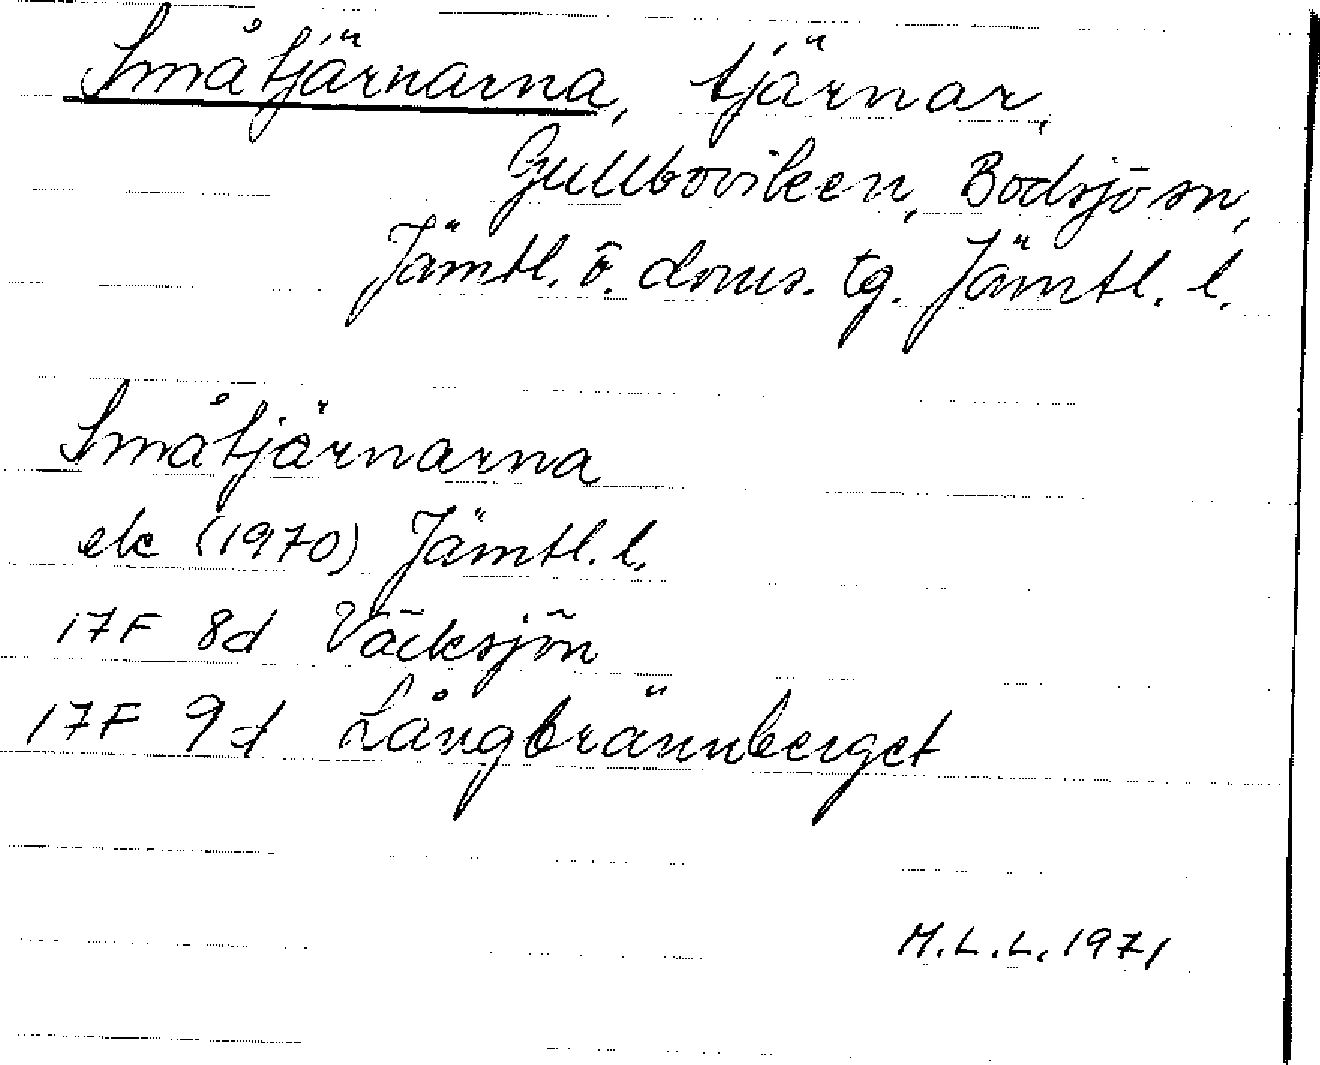 Småtjärnarna, tjärnar,
Gullboviken, Bodsjö sn,
Jämtl. ö. doms. tg. Jämtl. l.
Småtjärnarna
ek (1970) Jämtl. l.
17F 8d Väcksjön
17F 9d Långbrännberget
M.L.L. 1971